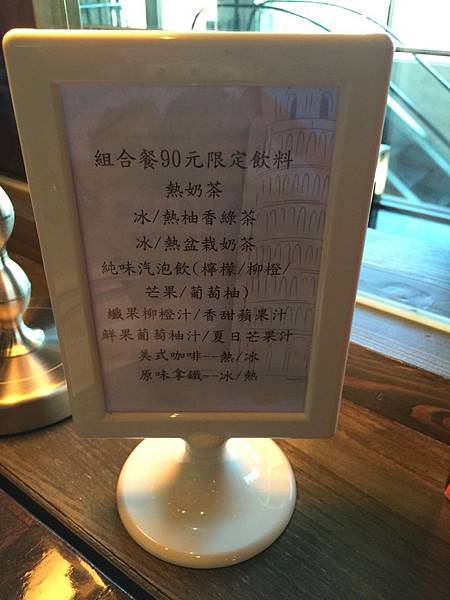 組合餐90元限定飲料
熱奶茶
冰/熱柚香綠茶
冰/熱盆栽奶茶
純味汽泡飲(檸檬/柳橙/
芒果/葡萄柚)
纖果柳橙汁/香甜蘋果汁
鮮果葡萄柚汁/夏日芒果汁
美式咖啡--熱/冰
原味拿鐵--冰/熱